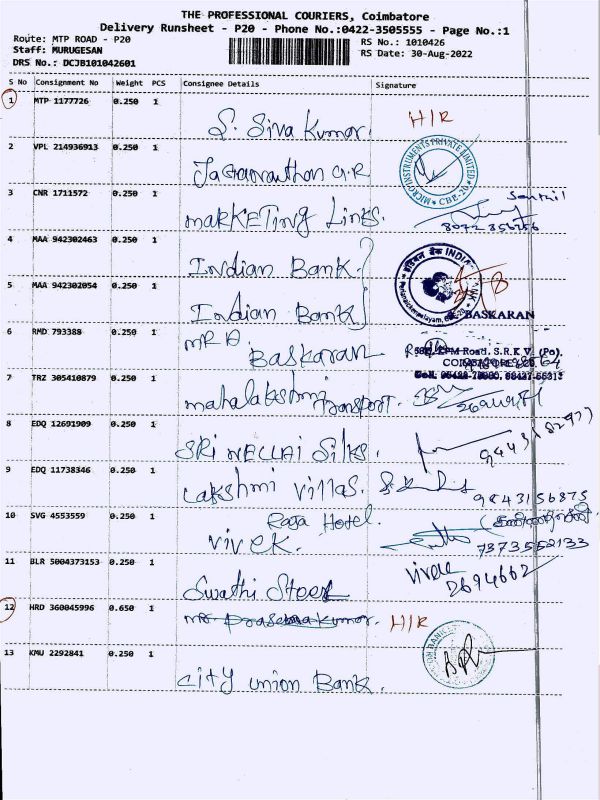 THE PROFESSIONAL COURIERS, Coimbatore
Delivery Runsheet - P20 - Phone No.:0422-3505555 - Page No.:1
Route: MTP ROAD - P20
RS No.: 1010426
Staff: MURUGESAN
RS Date: 30-Aug-2022
DRS No.: DCJB101042601
S No Consignment No Weight PCS Consignee Details Signature
1 MTP 1177726 0.250 1
S. Siva Kumar. H/R
2 VPL 214936913 0.250 1
G.R
MICRO INSTRUMENTS PRIVATE LIMITED
CBE-20
3 CNR 1711572 0.250 1
Marketing Links. Senthil
4 MAA 942302463 0.250 1
Indian Bank.
5 MAA 942302054 0.250 1
Indian Bank
BASKARAN
6 RMD 793388 0.250 1
MR D.
Baskaran
Road, S.R.K.V. (Po).
7 TRZ 305410879 0.250 1
mahalakshmi Transport.
8 EDQ 12691909 0.250 1
SRI NELLAI Silks.
9 EDQ 11738346 0.250 1
Lakshmi Villas.
9843156875
10 SVG 4553559 0.250 1
Raja Hotel.
VIVEK.
7373552133
11 BLR 5004373153 0.250 1
Vivek
2694662
Swathi Steel
12 HRD 360045996 0.650 1
MR Prasenakumar. H/R
13 KMU 2292841 0.250 1
City Union Bank.